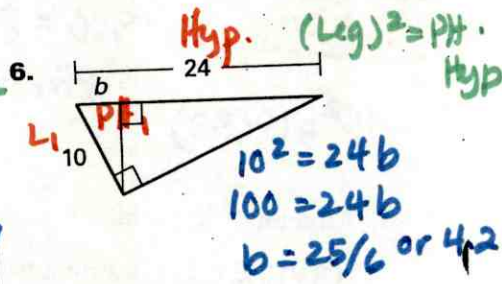 Hyp.
(Leg)² = PH.
Hyp
6.
24
b
PH₁
L₁
10
10² = 24b
100 = 24b
b = 25/6 or 4.2